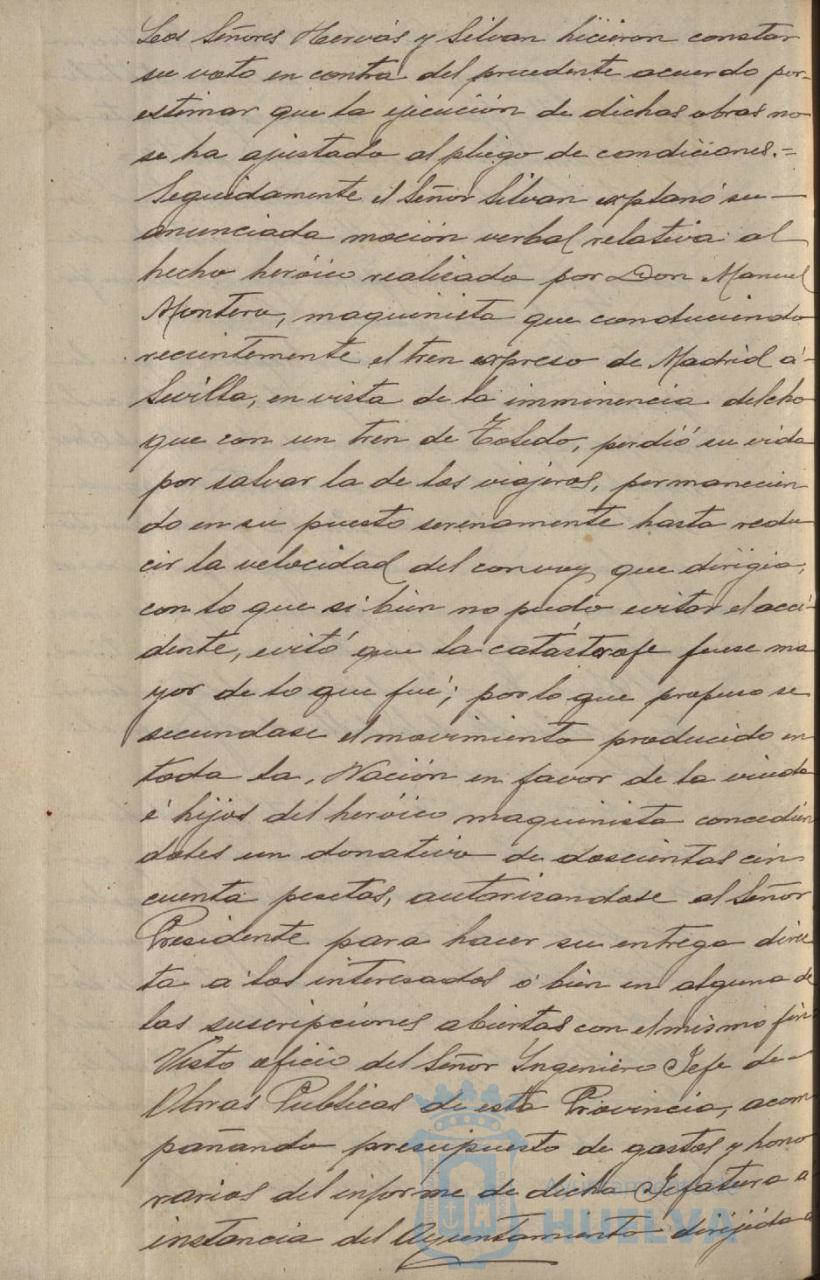 Los Señores Hervás y Silvan hicieron constar
su voto en contra del precedente acuerdo por-
estimar que la ejecución de dichas obras no
se ha ajustado al pliego de condiciones.=
Seguidamente el Señor Silvan explanó su—
anunciada moción verbal relativa al
hecho heróico realizado por Don Manuel
Montero, maquinista que conduciendo
recientemente el tren expreso de Madrid á-
Sevilla, en vista de la imminencia del cho
que con un tren de Toledo, perdió su vida
por salvar la de los viajeros, permanecien
do en su puesto serenamente hasta redu
cir la velocidad del convoy que dirigia,
con lo que si bien no pudo evitar el acci-
dente, evitó que la catástrofe fuese ma
yor de lo que fué; por lo que propuso se
secundase el movimiento producido en
toda la Nación en favor de la viuda
é hijos del heróico maquinista concedién
doles un donativo de doscientas cin
cuenta pesetas, autorizandose al Señor
Presidente para hacer su entrega direc
ta a los interesados ó bien en alguna de
las suscripciones abiertas con el mismo fin
Visto oficio del Señor Ingeniero Jefe de-
Obras Publicas de esta Provincia, acom
pañando presupuesto de gastos y hono
rarios del informe de dicha Jefatura a
instancia del Ayuntamiento dirijida a
Ayuntamiento de
HUELVA